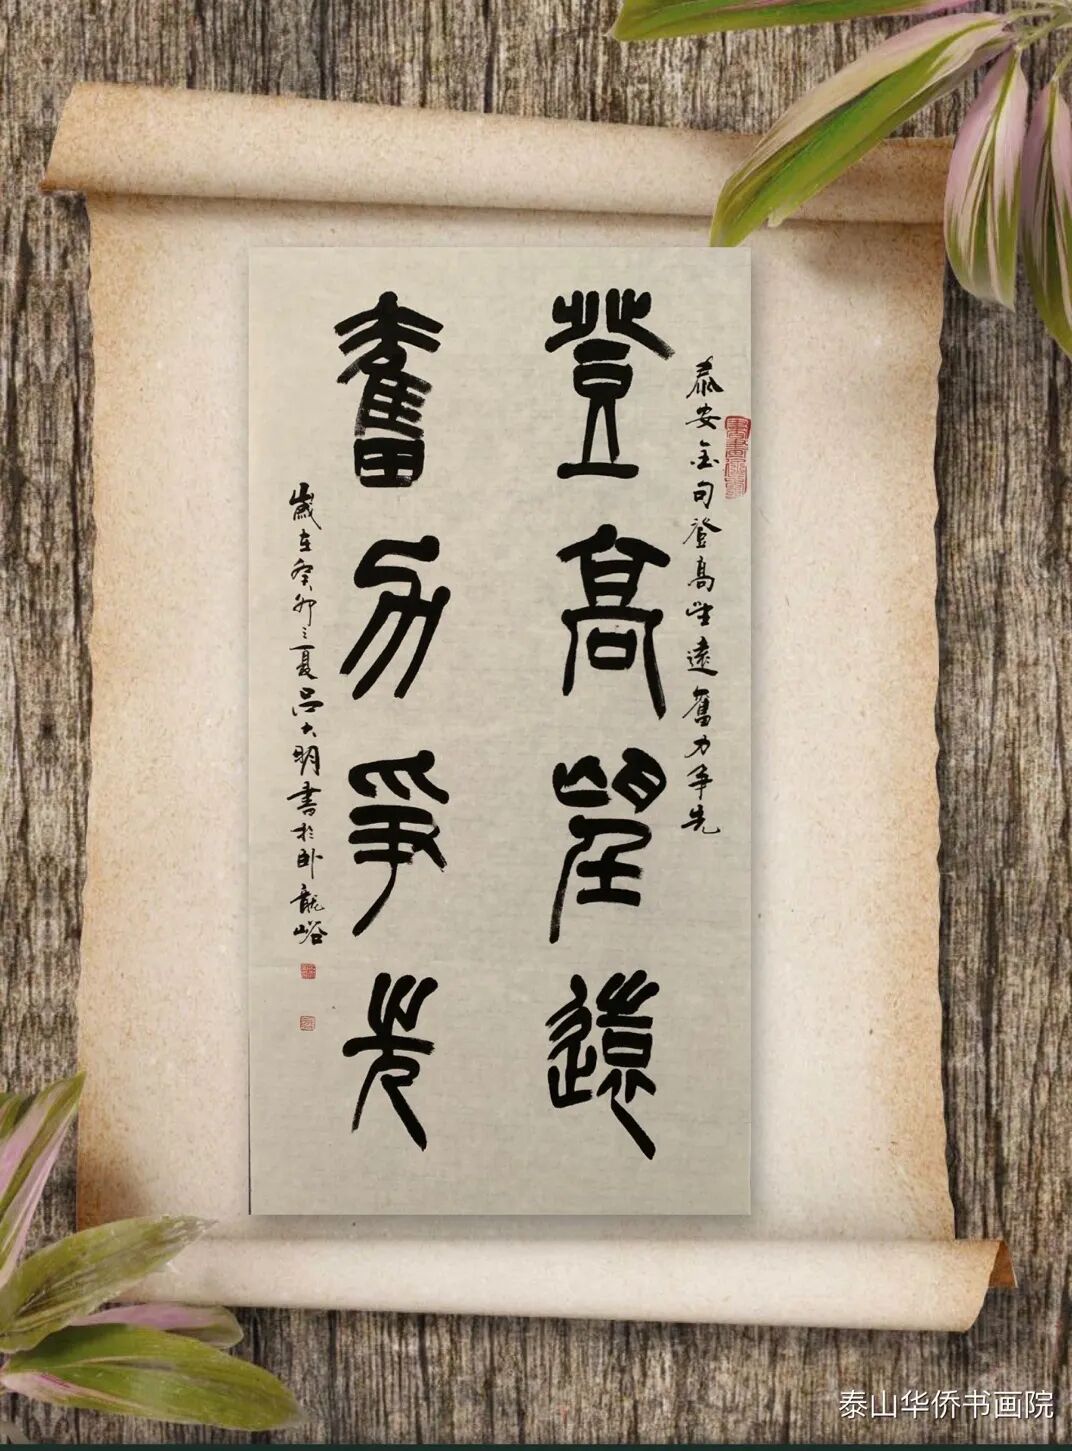 泰安金句登高望遠奮力争先
登高望遠
奮力爭先
歲在癸卯之夏呂大明書於卧龍峪
泰山华侨书画院